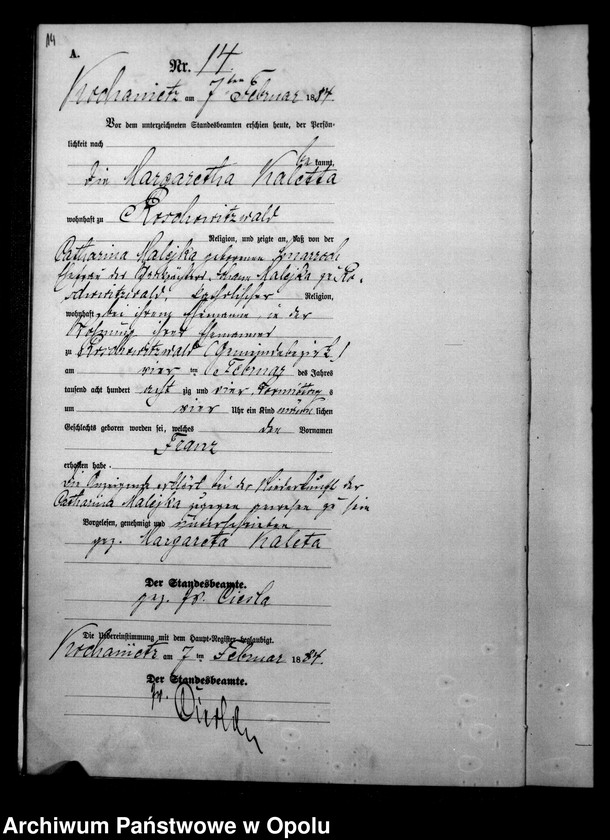 14
A.
Nr. 14
Kochanietz am 7ten Februar 1884.
Vor dem unterzeichneten Standesbeamten erschien heute, der Persön-
lichkeit nach
be kannt,
die Margaretha Kaletta
wohnhaft zu Roschowitzwald
Religion, und zeigte an, daß von der
Catharina Malejka geborenen
Ehefrau des Malejka zu Ro-
schowitzwald, katholischer Religion,
wohnhaft bei ihrem Ehemanne, in der
Wohnung ihres Ehemannes
zu Roschowitzwald
am vier ten Februar des Jahres
tausend acht hundert acht zig und vier Vormittag s
um vier Uhr ein Kind männ lichen
Geschlechts geboren worden sei, welches den Vornamen
Franz
erhalten habe.
Die Anzeigende erklärt bei der Niederkunft der
Catharina Malejka zugegen gewesen zu sein
Vorgelesen, genehmigt und unterschrieben
gez. Margareta Kaleta
Der Standesbeamte.
gez. Ciesla
Die Uebereinstimmung mit dem Haupt-Register beglaubigt.
Kochanietz am 7 ten Februar 1884.
Der Standesbeamte.
Ciesla
Archiwum Państwowe w Opolu